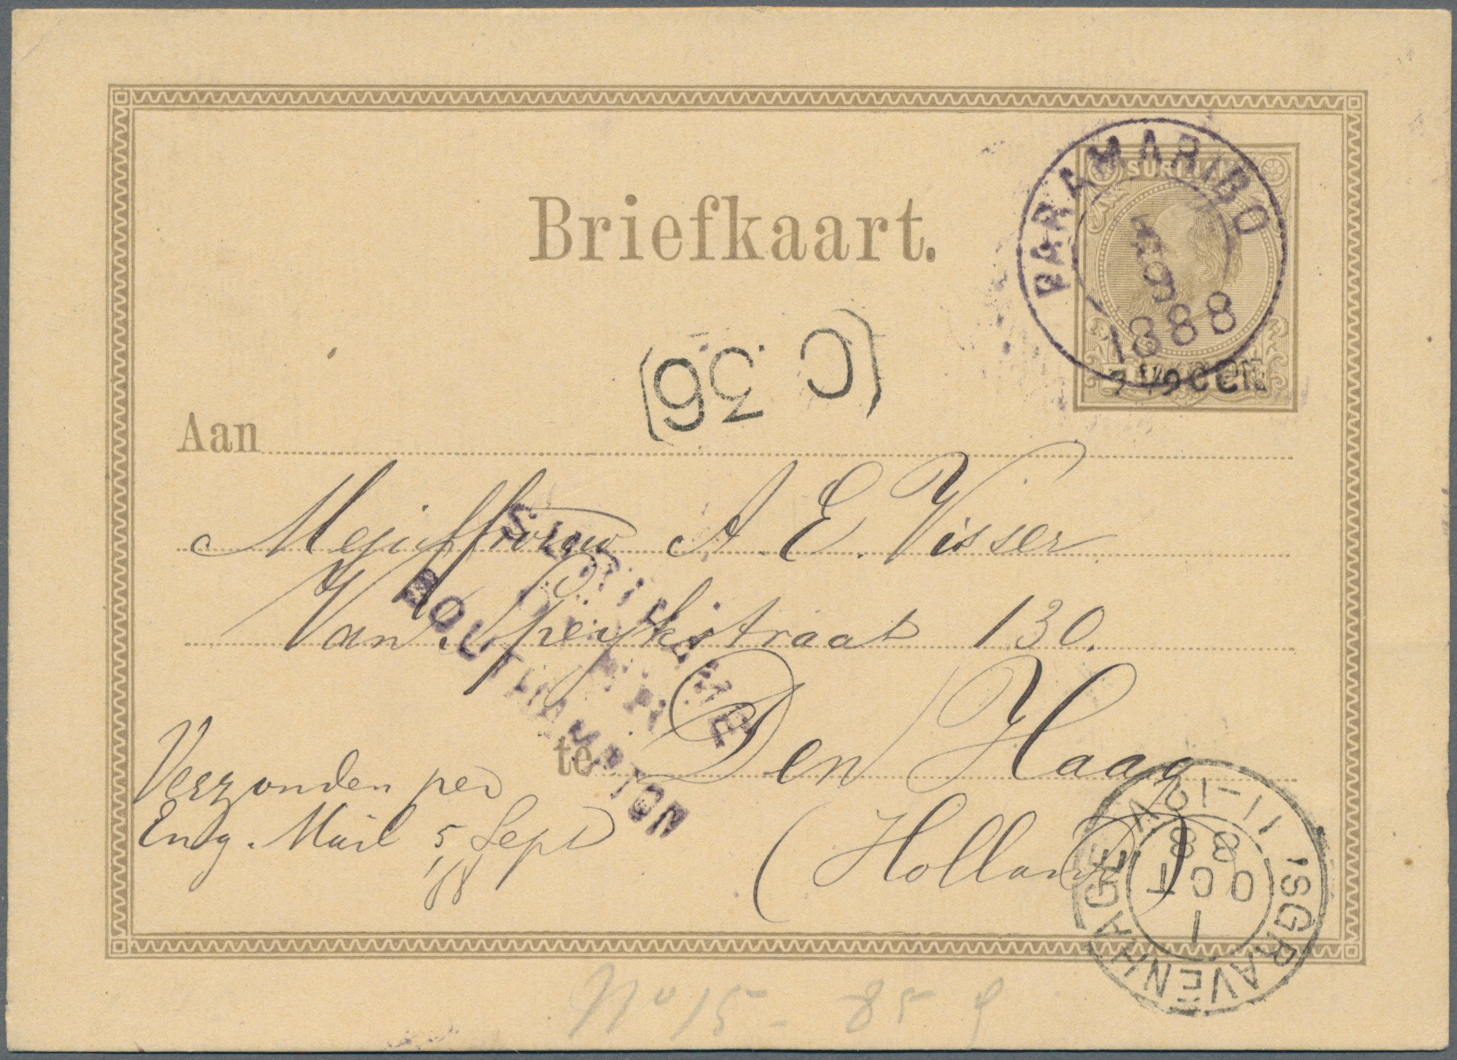 Briefkaart.
SURI
PARAMARIBO
5/9
1888
7 1/2 CENT
C 36
Aan
Mejuffrouw A. E. Visser
Van Speykstraat 130.
te Den Haag
(Holland)
SURINAME
SOUTHAMPTON
Verzonden per
Eng. Mail 5 Sept
/88
'SGRAVENHAGE
11-12V
1
OCT
88
No 15 - 85